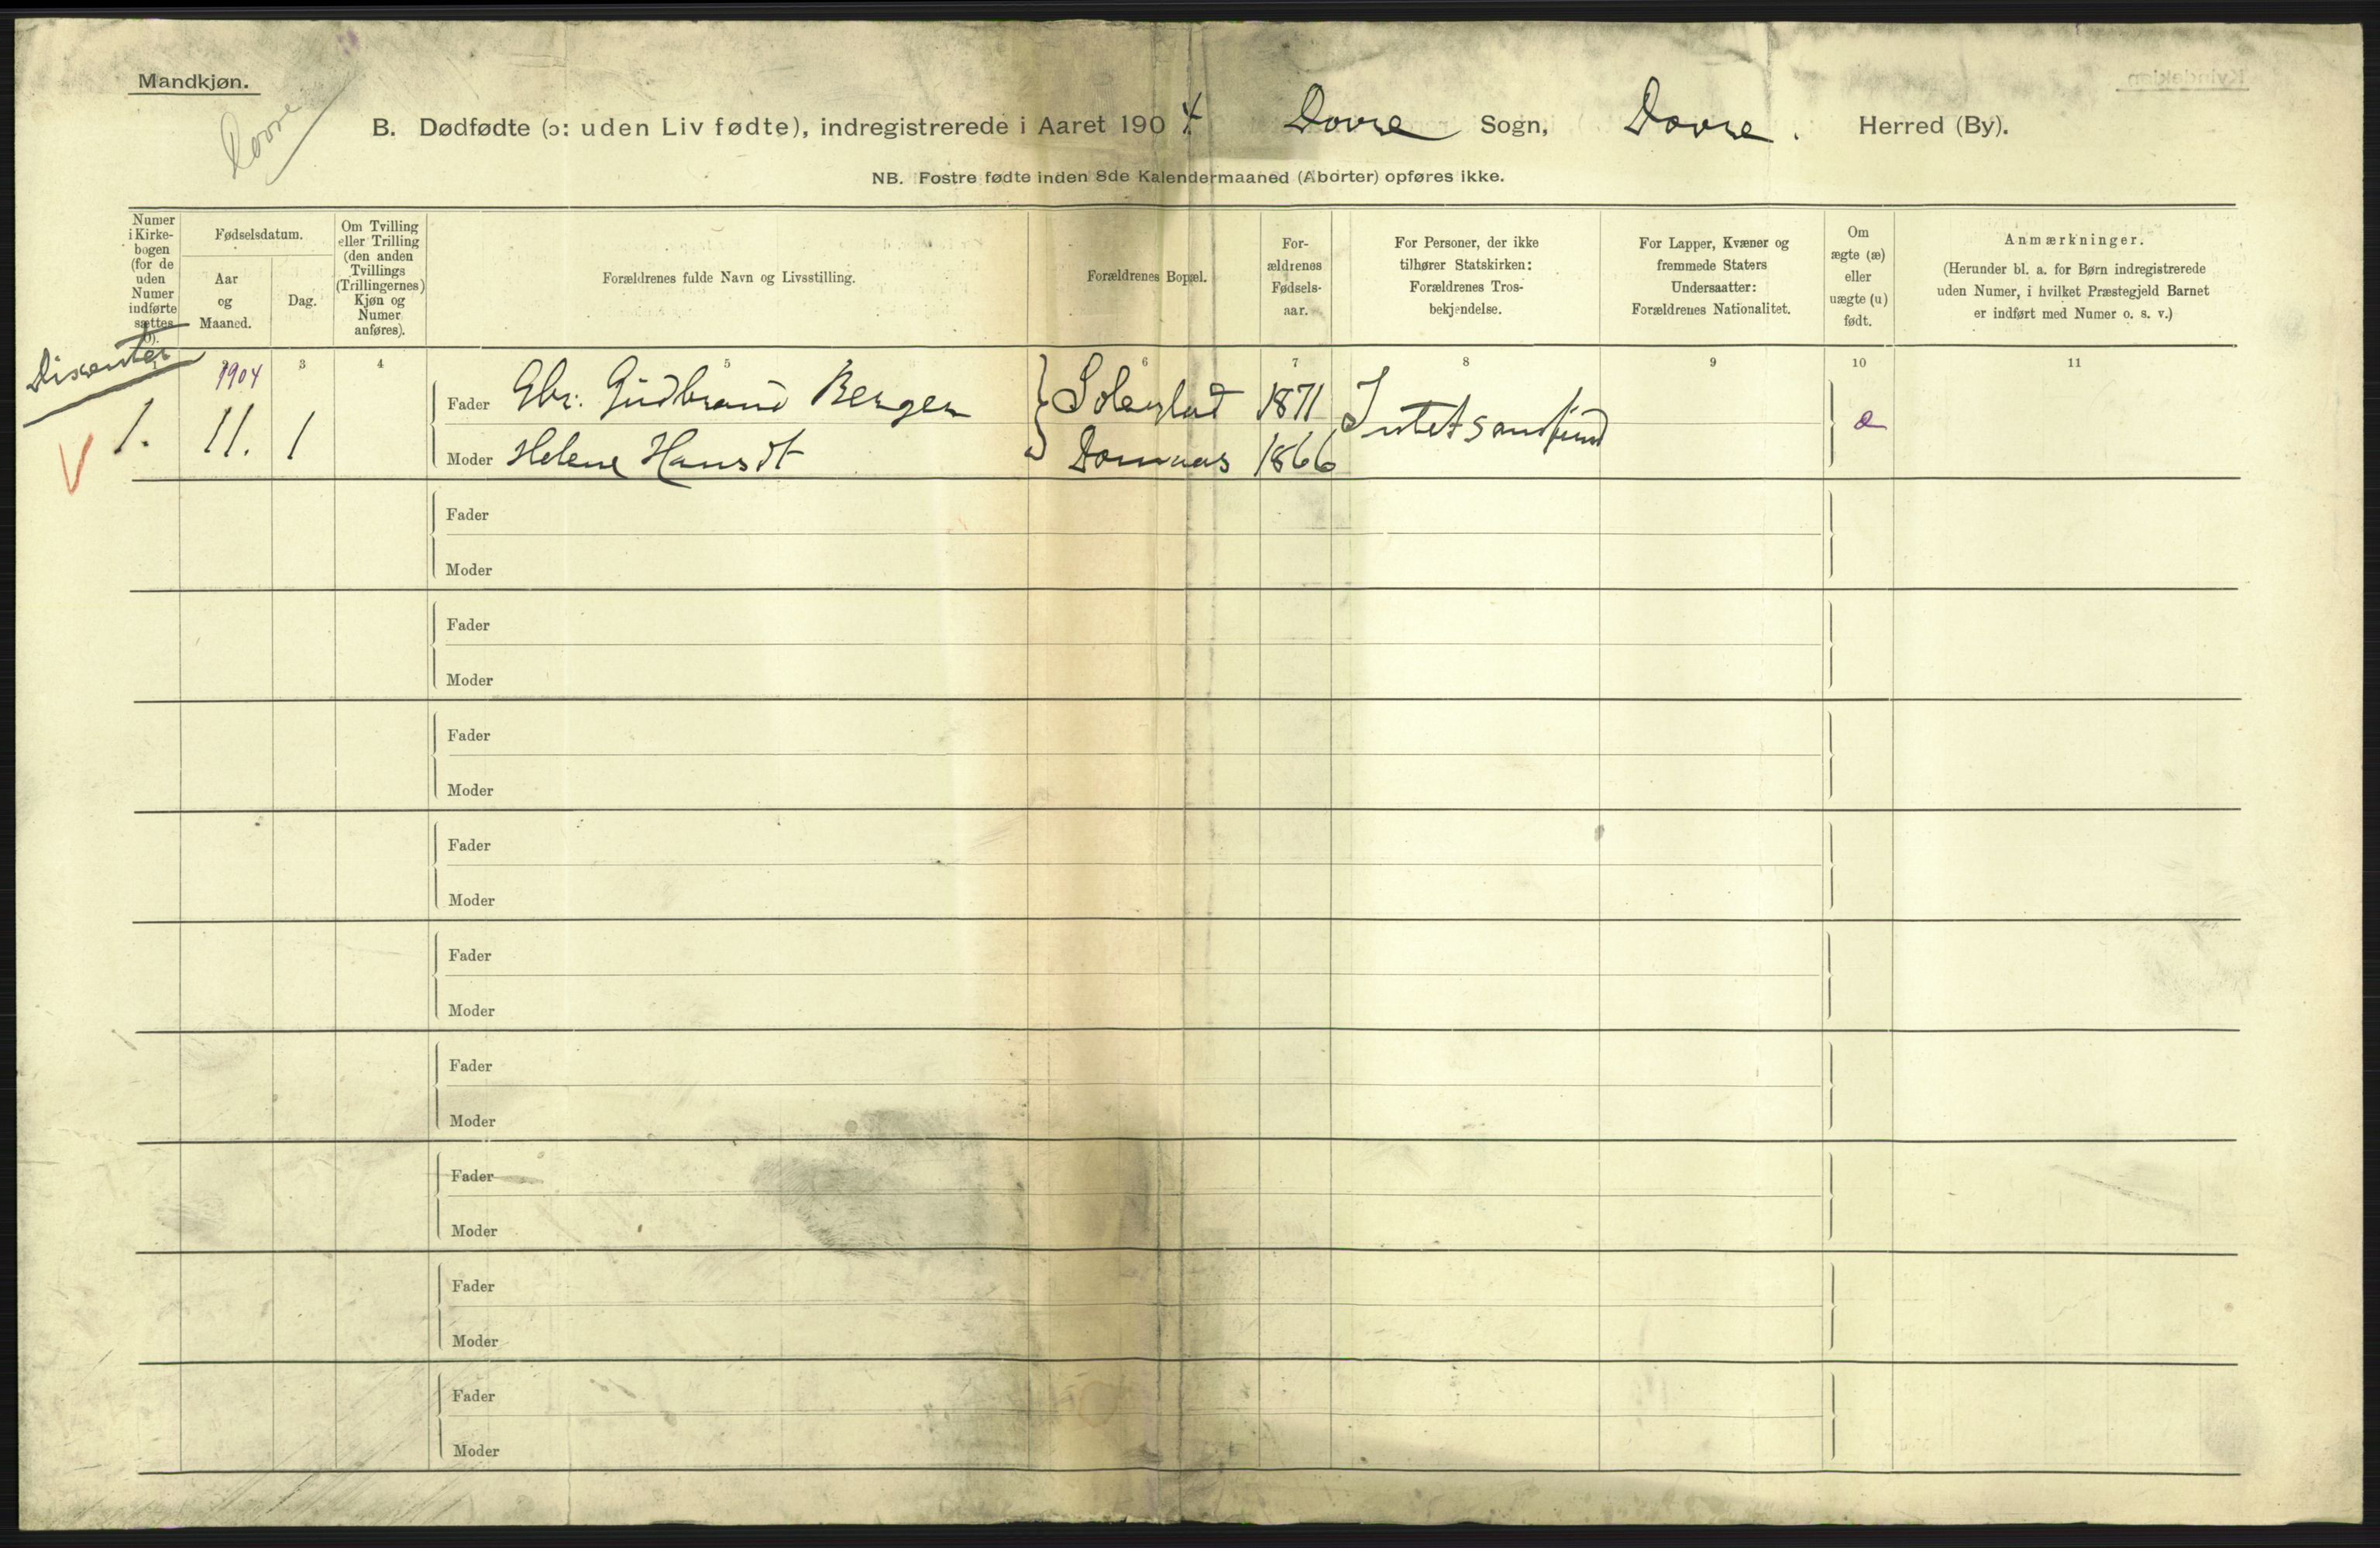 Mandkjøn.
Dovre
B. Dødfødte (ɔ: uden Liv fødte), indregistrerede i Aaret 1904. Dovre Sogn, Dovre. Herred (By).
NB. Fostre fødte inden 8de Kalendermaaned (Aborter) opføres ikke.
Numer
i Kirke-
bogen
(for de
uden
Numer
indførte
sættes
0).
Fødselsdatum.
Aar
og
Maaned.
Dag.
Om Tvilling
eller Trilling
(den anden
Tvillings
(Trillingernes)
Kjøn og
Numer
anføres).
Forældrenes fulde Navn og Livsstilling.
Forældrenes Bopæl.
For-
ældrenes
Fødsels-
aar.
For Personer, der ikke
tilhører Statskirken:
Forældrenes Tros-
bekjendelse.
For Lapper, Kvæner og
fremmede Staters
Undersaatter:
Forældrenes Nationalitet.
Om
ægte (æ)
eller
uægte (u)
født.
Anmærkninger.
(Herunder bl. a. for Børn indregistrerede
uden Numer, i hvilket Præstegjeld Barnet
er indført med Numer o. s. v.)
3 4 5 6 7 8 9 10 11
Dissenter
1904
1. 11. 1
Fader Gbr. Gudbrand Bergen 1871 Intet samfund æ
Moder Helene Hansdt Domaas 1866
Fader
Moder
Fader
Moder
Fader
Moder
Fader
Moder
Fader
Moder
Fader
Moder
Fader
Moder
Fader
Moder
Fader
Moder